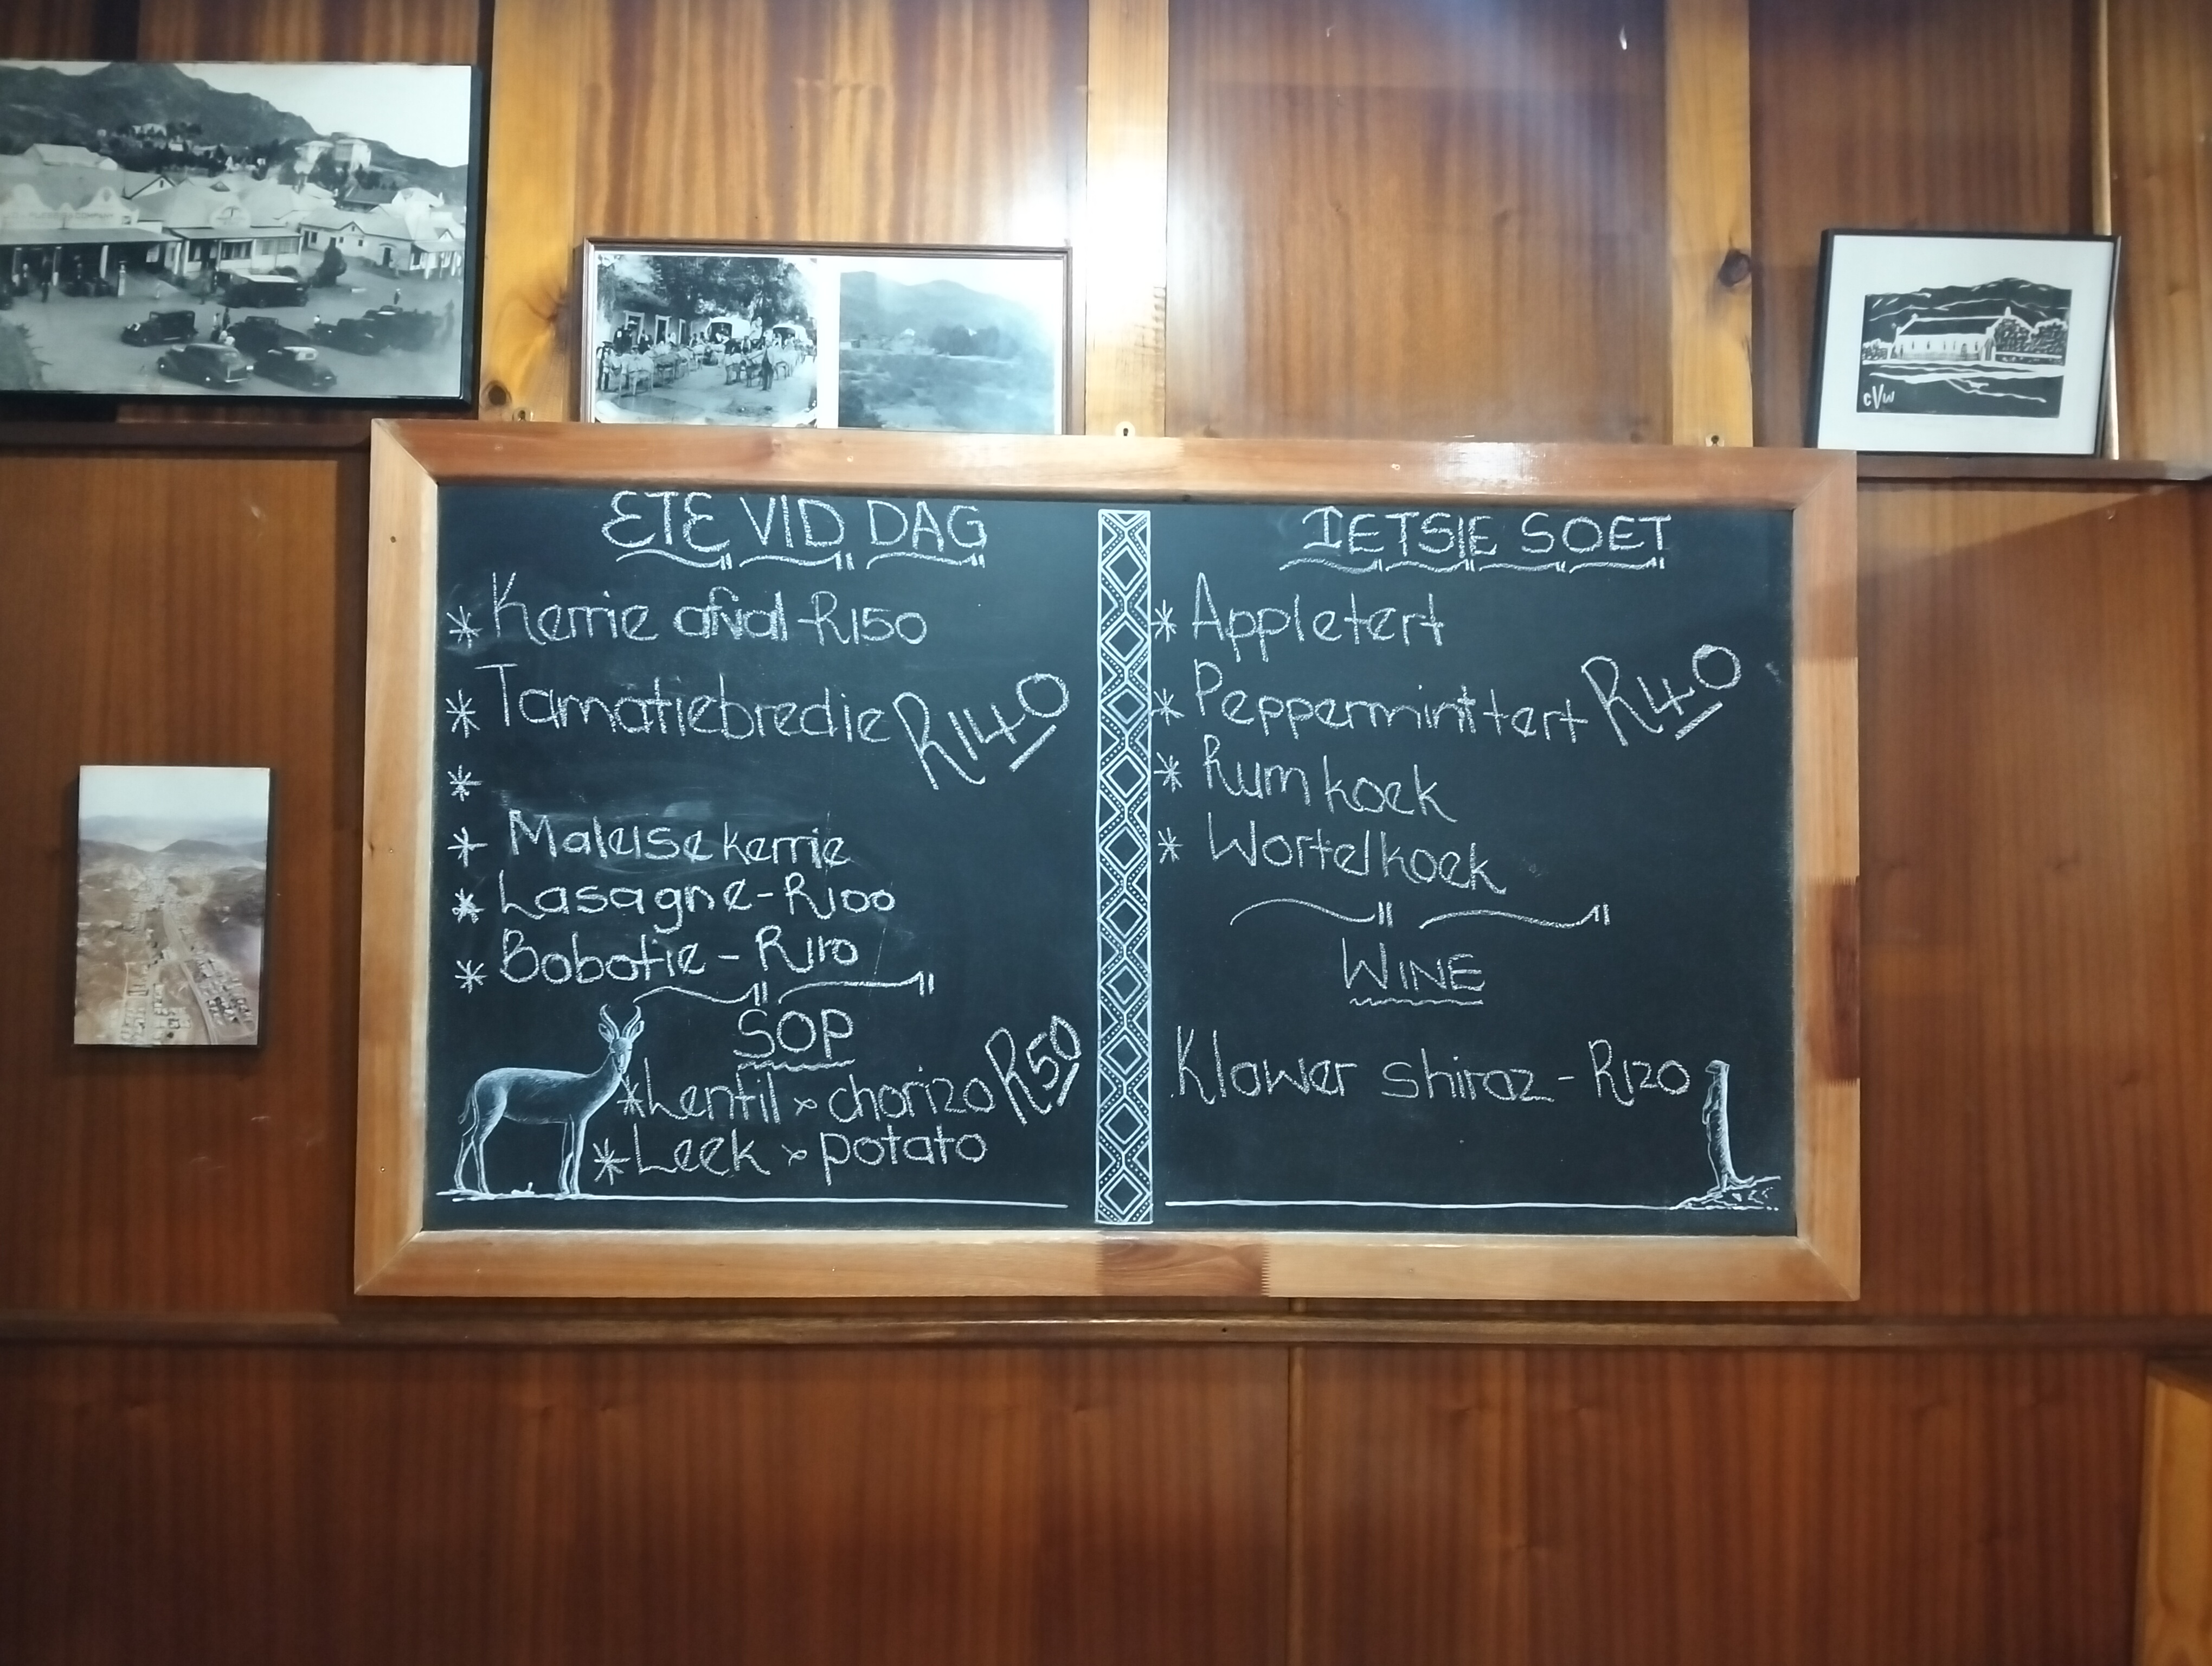 ETE VID DAG
* Kerrie afval - R150
* Tamatiebredie R140
*
* Maleise kerrie
* Lasagne - R100
* Bobotie - R110
SOP
* Lentil & chorizo R50
* Leek & potato
IETSIE SOET
* Appletert
* Peppermint tert R40
* Rum koek
* Wortelkoek
WINE
Klawer shiraz - R120
cVw